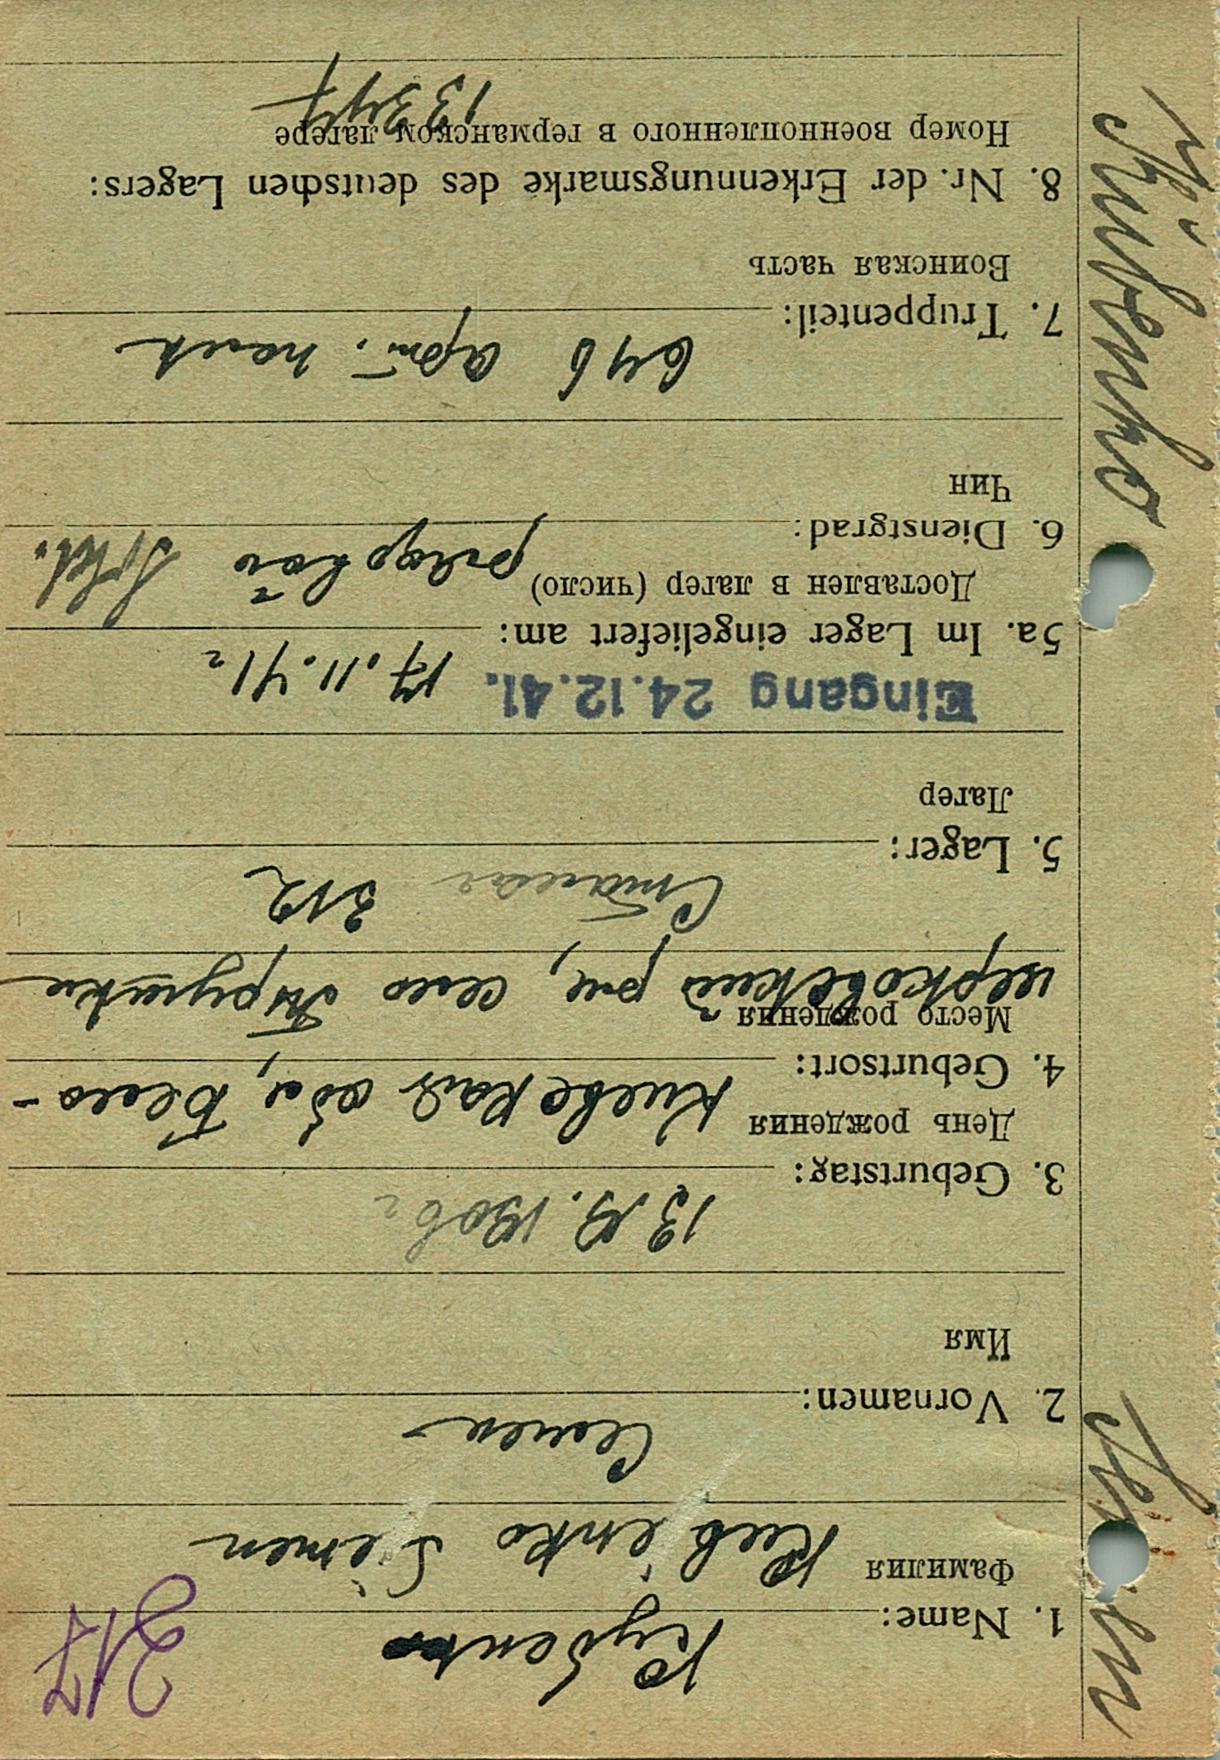 217
1. Name: Кубенко
Фамилия Kub'enko Simen
2. Vornamen: Семен
Имя
3. Geburtstag: 13.19.1906 г
День рождения
4. Geburtsort: Киевская обл, Бело-
Место рождения
церковский р-н, село
5. Lager: Сталаг 312
Лагер
Eingang 24.12.41. 17.11.41 г
5a. Im Lager eingeliefert am:
Доставлен в лагер (число)
6. Dienstgrad: рядовой Sold.
Чин
7. Truppenteil: 646 арт. полк
Воинская часть
8. Nr. der Erkennungsmarke des deutschen Lagers:
Номер военнопленного в германском лагере
13347
Kubenko